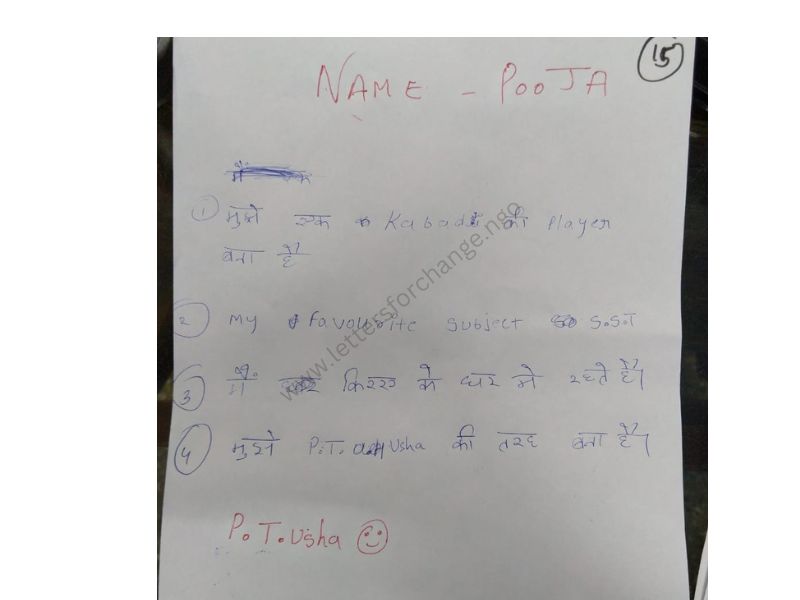 15
NAME - POOJA
① मुझे एक Kabaddi की Player
बना है
2 My Favourite Subject S.S.T
3 मैं किराए के घर मे रहते हैं।
4 मुझे P.T. Usha की तरह बना हैं।
P.T.Usha
www.lettersforchange.ngo